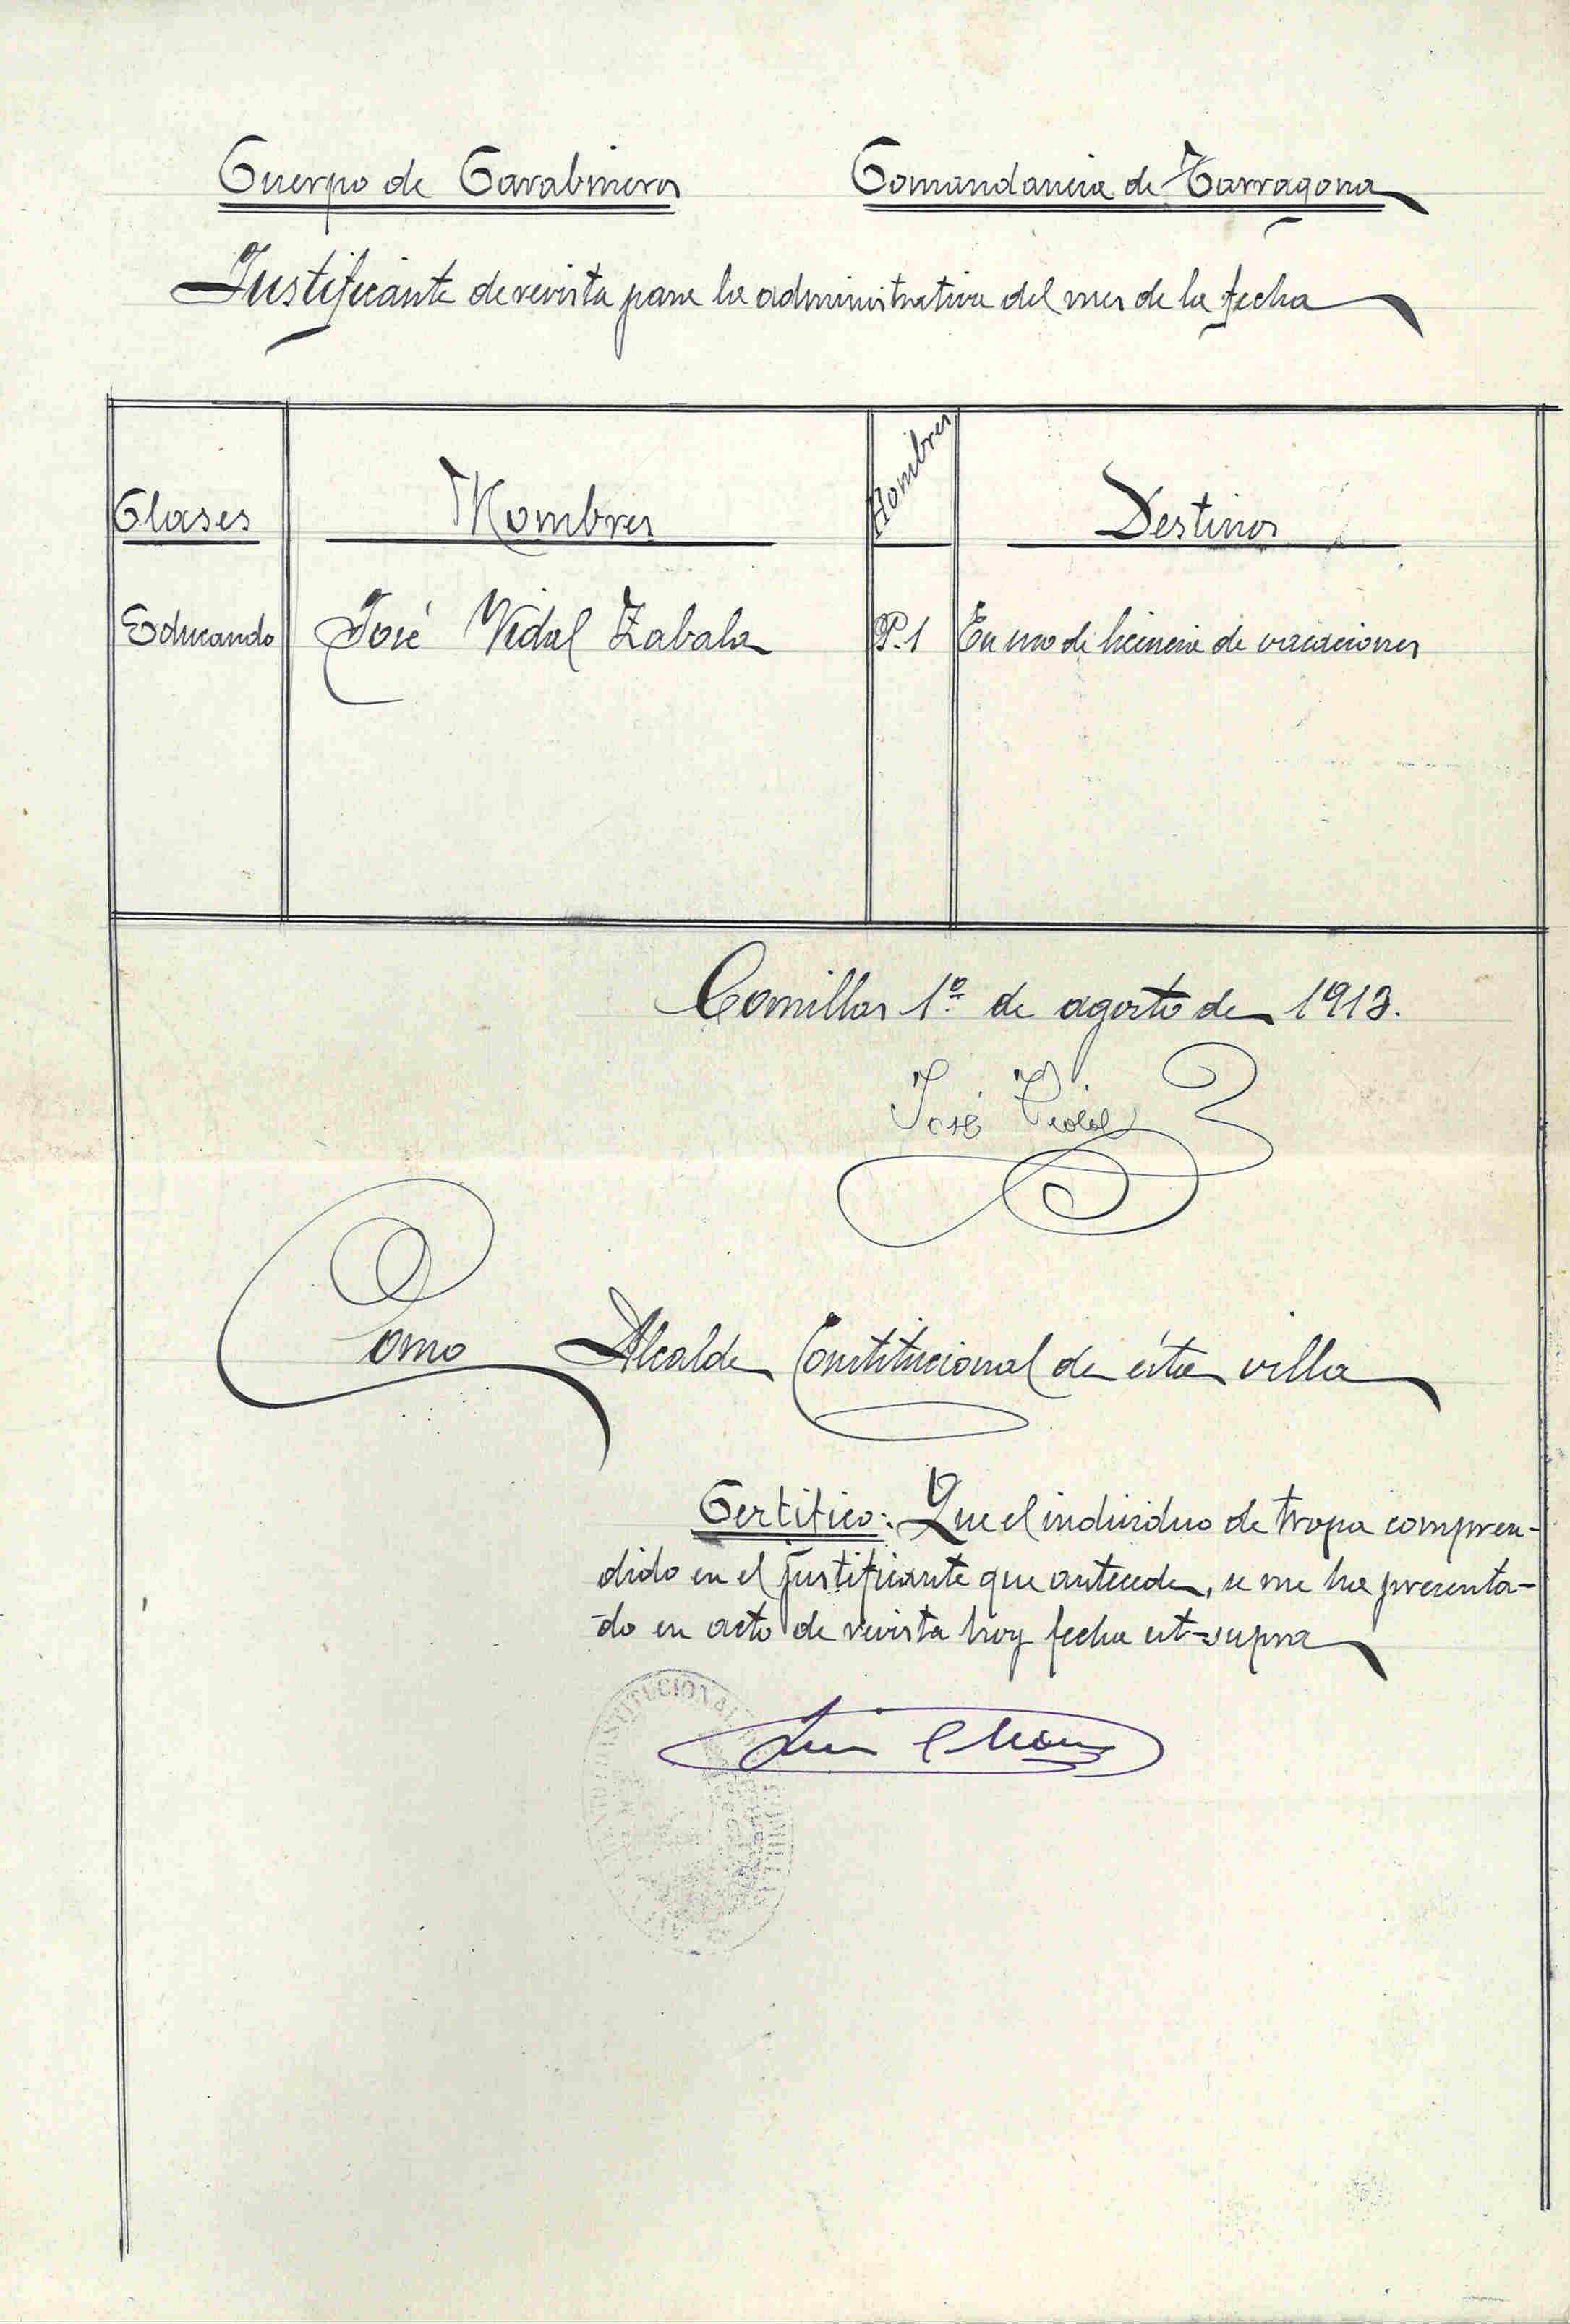 Cuerpo de Carabineros
Comandancia de Tarragona
Justificante de revista para la administrativa del mes de la fecha
Clases
Nombres
Hombres
Destinos
Educando
José Vidal Zabala
P. 1
En uso de licencia de vacaciones
Comillas 1º de agosto de 1913.
José Vidal
Como Alcalde Constitucional de ésta villa
Certifico: Que el individuo de tropa compren-
dido en el justificante que antecede, se me ha presenta-
do en acto de revista hoy fecha ut-supra